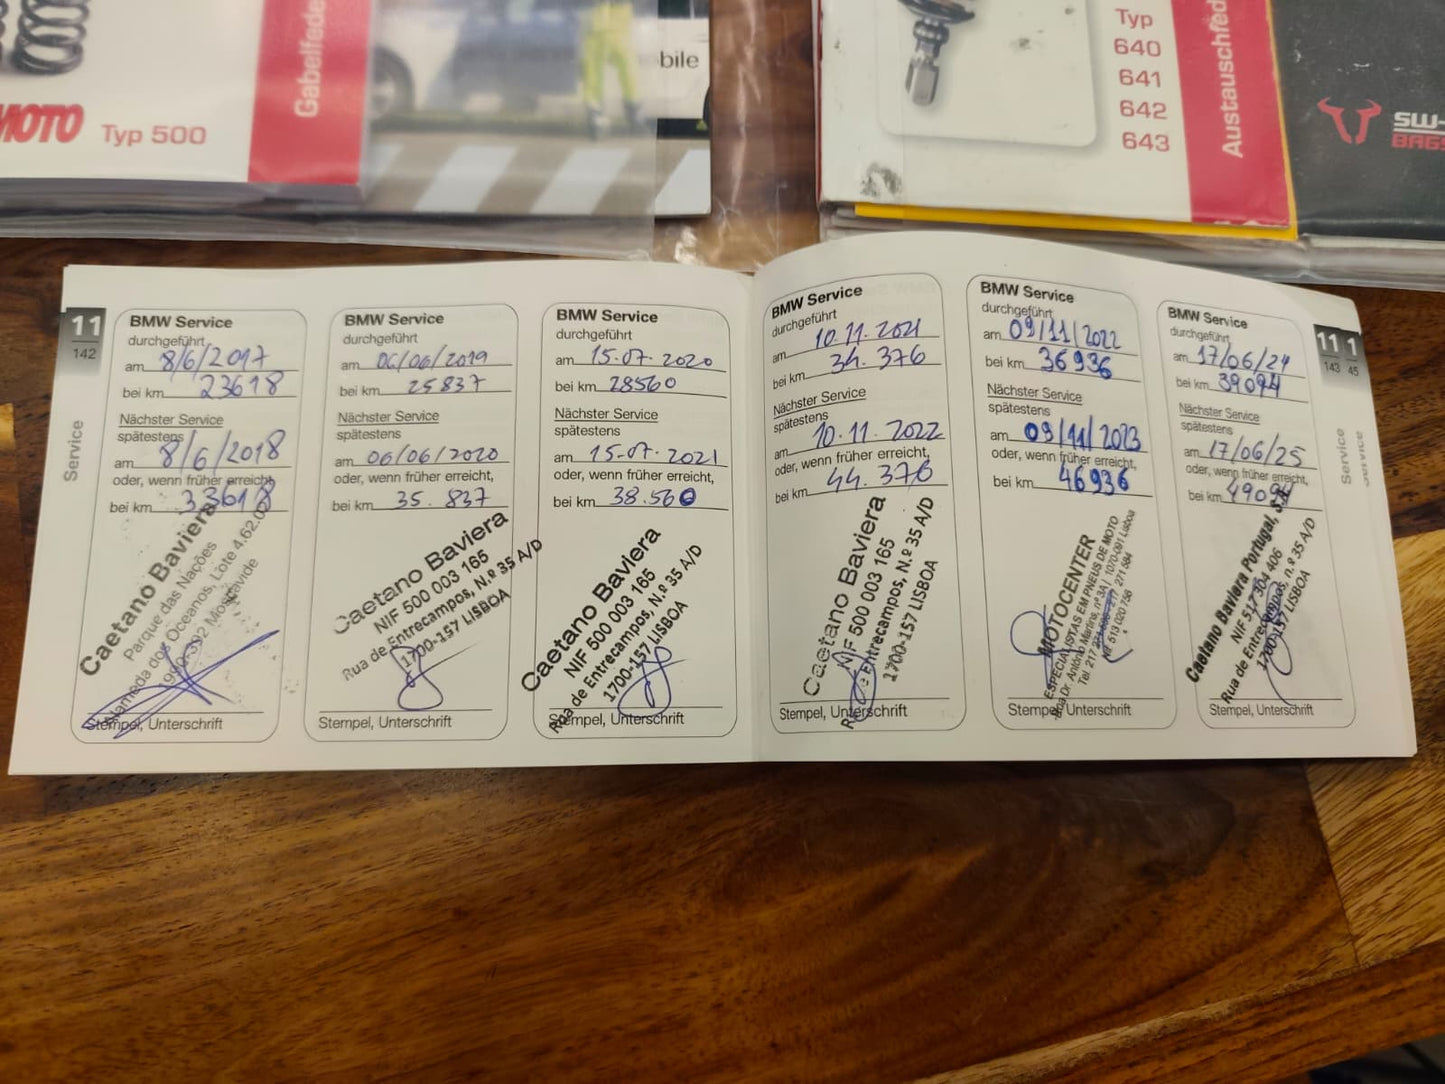 Gabelfede
MOTO Typ 500
bile
Typ
640
641
642
643
Austauschfed
SW-
BAGS
11
142
Service
BMW Service
durchgeführt
am 8/6/2017
bei km 23618
Nächster Service
spätestens
am 8/6/2018
oder, wenn früher erreicht,
bei km 33618
Caetano Baviera
Parque das Nações
Alameda dos Oceanos, Lote 4.62.0
1990-392 Moscavide
Stempel, Unterschrift
BMW Service
durchgeführt
am 06/06/2019
bei km 25837
Nächster Service
spätestens
am 06/06/2020
oder, wenn früher erreicht,
bei km 35.837
Caetano Baviera
NIF 500 003 165
Rua de Entrecampos, N.º 35 A/D
1700-157 LISBOA
Stempel, Unterschrift
BMW Service
durchgeführt
am 15-07-2020
bei km 28560
Nächster Service
spätestens
am 15-07-2021
oder, wenn früher erreicht,
bei km 38.560
Caetano Baviera
NIF 500 003 165
Rua de Entrecampos, N.º 35 A/D
1700-157 LISBOA
Stempel, Unterschrift
BMW Service
durchgeführt
am 10.11.2021
bei km 34.376
Nächster Service
spätestens
am 10.11.2022
oder, wenn früher erreicht,
bei km 44.376
Caetano Baviera
NIF 500 003 165
Rua de Entrecampos, N.º 35 A/D
1700-157 LISBOA
Stempel, Unterschrift
BMW Service
durchgeführt
am 09/11/2022
bei km 36936
Nächster Service
spätestens
am 09/11/2023
oder, wenn früher erreicht,
bei km 46936
MOTOCENTER
ESPECIALISTAS EM PNEUS DE MOTO
Rua Dr. António Martins, nº 3A | 1070-091 Lisboa
Tel. 217 271 584
NIF 513 020 758
Stempel, Unterschrift
BMW Service
durchgeführt
am 17/06/24
bei km 39094
Nächster Service
spätestens
am 17/06/25
oder, wenn früher erreicht,
bei km 49094
Caetano Baviera Portugal, SA
NIF 511 304 406
Rua de Entrecampos, n.º 35 A/D
1700-157 LISBOA
Stempel, Unterschrift
11 1
143 45
Service
Service